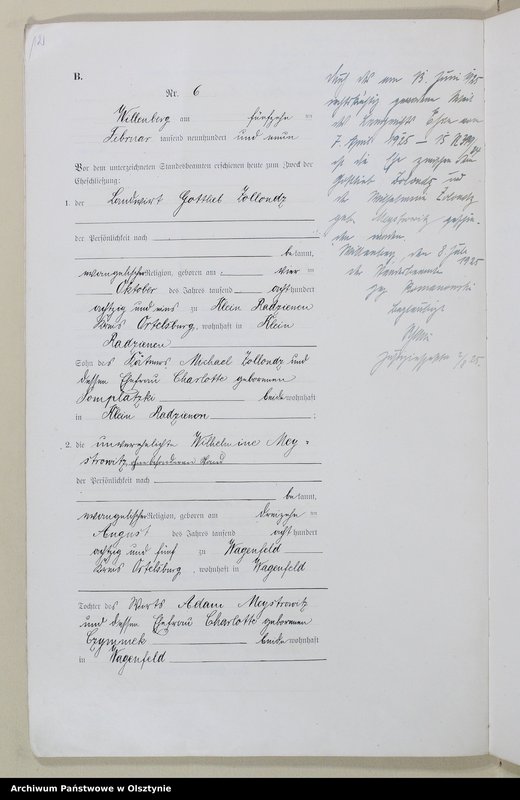 B.
Nr. 6
Willenberg am fünfzehn ten
Februar tausend neunhundert und neun
Vor dem unterzeichneten Standesbeamten erschienen heute zum Zweck der
Eheschließung:
1. der Landwirt Gottlieb Zollondz
der Persönlichkeit nach
be kannt,
evangelischer Religion, geboren am vier ten
Oktober des Jahres tausend acht hundert
achtzig und eins zu Klein Radzienen
Kreis Ortelsburg, wohnhaft in Klein
Radzienen
Sohn des Kätners Michael Zollondz und
dessen Ehefrau Charlotte geborenen
Somplatzki beide wohnhaft
in Klein Radzienen ;
2. die unverehelichte Wilhelmine Mey-
strowitz, ohne besonderen Stand
der Persönlichkeit nach
be kannt,
evangelischer Religion, geboren am dreizehn ten
August des Jahres tausend acht hundert
achtzig und fünf zu Wagenfeld
Kreis Ortelsburg, wohnhaft in Wagenfeld
Tochter des Wirts Adam Meystrowitz
und dessen Ehefrau Charlotte geborenen
Czymmek beide wohnhaft
in Wagenfeld
Durch das am 13. Juni 1925
rechtskräftig gewordene Urteil
des Landgerichts
7. April 1925
ist die Ehe zwischen dem
Gottlieb Zolondz und
der Wilhelmine Zolondz
geb. Meystrowitz geschie-
den worden.
Willenberg, den 8 Juli
1925
der Standesbeamte
gez. Romanowski
Beglaubigt
25.
Archiwum Państwowe w Olsztynie